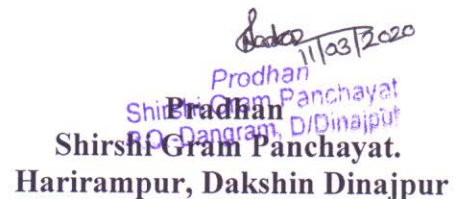 11/03/2020
Prodhan
Shirshi Gram Panchayat
P.O.-Dangram, D/Dinajpur
Pradhan
Shirshi Gram Panchayat.
Harirampur, Dakshin Dinajpur